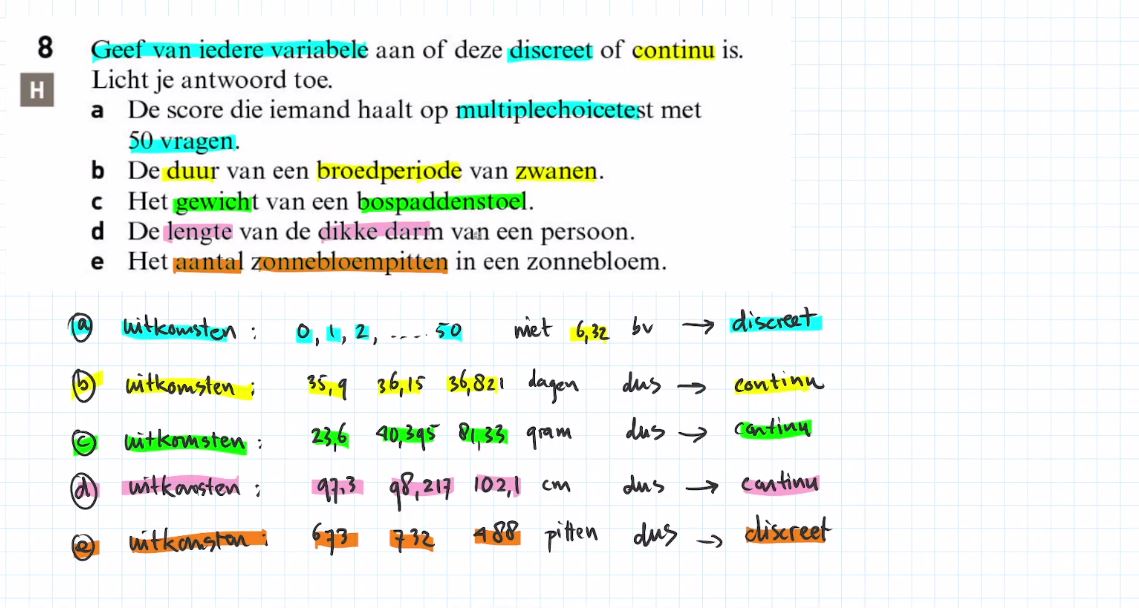 8 Geef van iedere variabele aan of deze discreet of continu is.
H Licht je antwoord toe.
a De score die iemand haalt op multiplechoicetest met
50 vragen.
b De duur van een broedperiode van zwanen.
c Het gewicht van een bospaddenstoel.
d De lengte van de dikke darm van een persoon.
e Het aantal zonnebloempitten in een zonnebloem.
a uitkomsten : 0, 1, 2, .... 50 niet 6,32 bv → discreet
b uitkomsten : 35,9 36,15 36,821 dagen dus → continu
c uitkomsten : 23,6 40,395 81,33 gram dus → continu
d uitkomsten : 97,3 98,217 102,1 cm dus → continu
e uitkomsten : 673 732 488 pitten dus → discreet